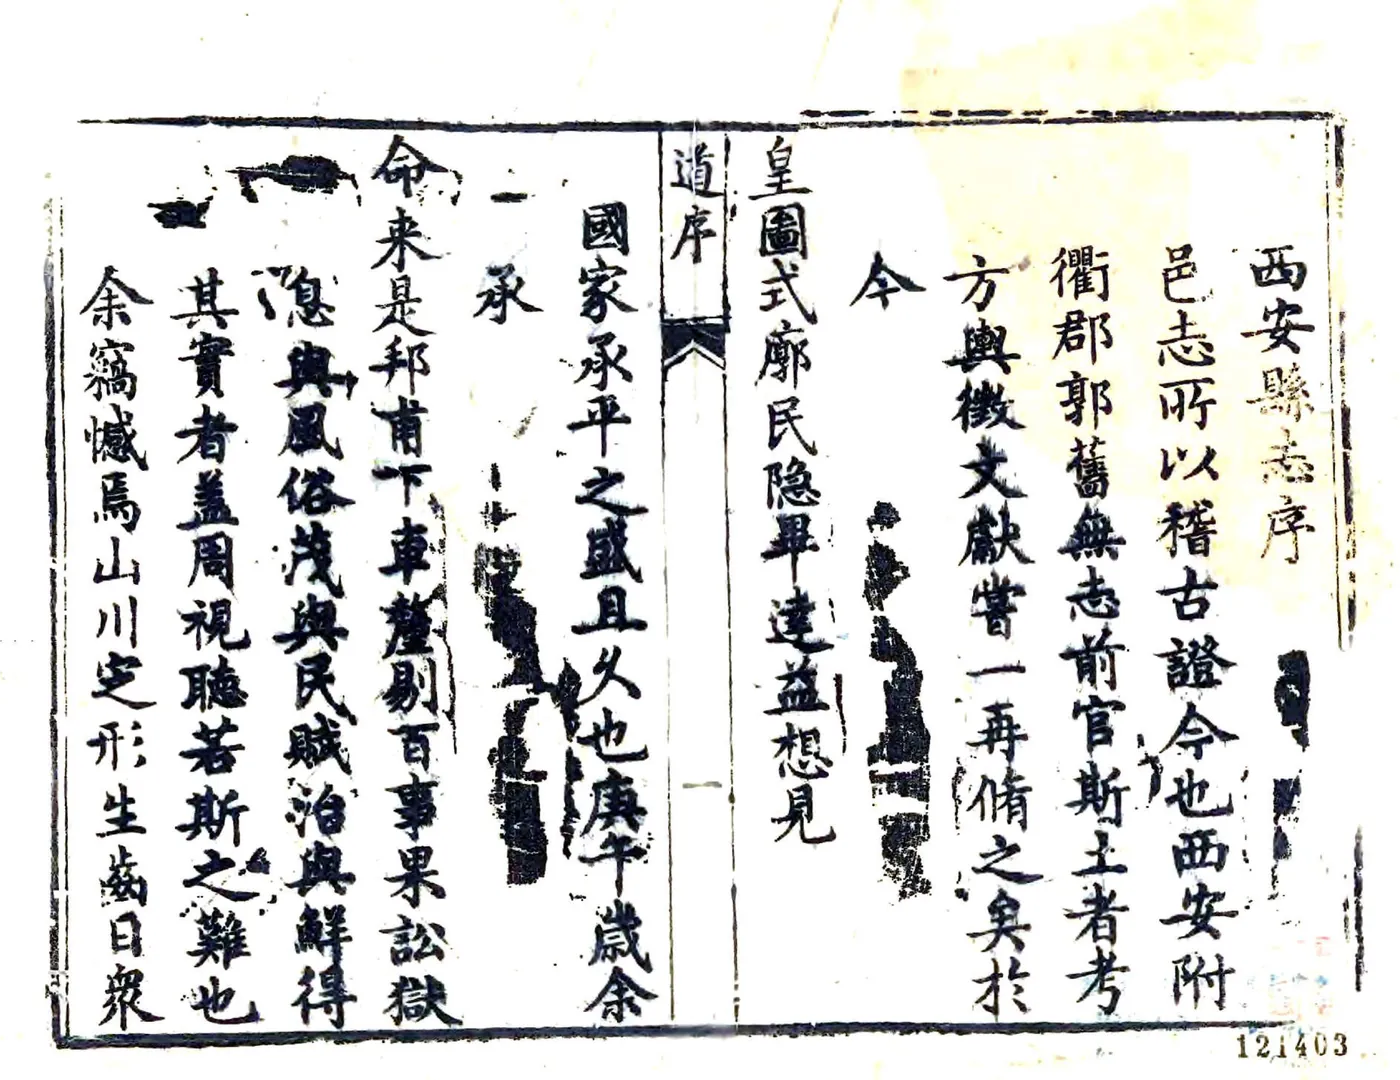 西安縣志序
邑志所以稽古證今也西安附
衢郡郭舊無志前官斯土者考
方輿徵文獻嘗一再脩之矣於
今
皇圖式廓民隐畢達益想見
道序
一
國家承平之盛且久也庚午歲余
承
命来是邦甫下車釐剔百事果訟獄
息與風俗茂與民賦治與鮮得
其實者盖周視聽若斯之難也
余竊憾焉山川定形生齒日衆
121403